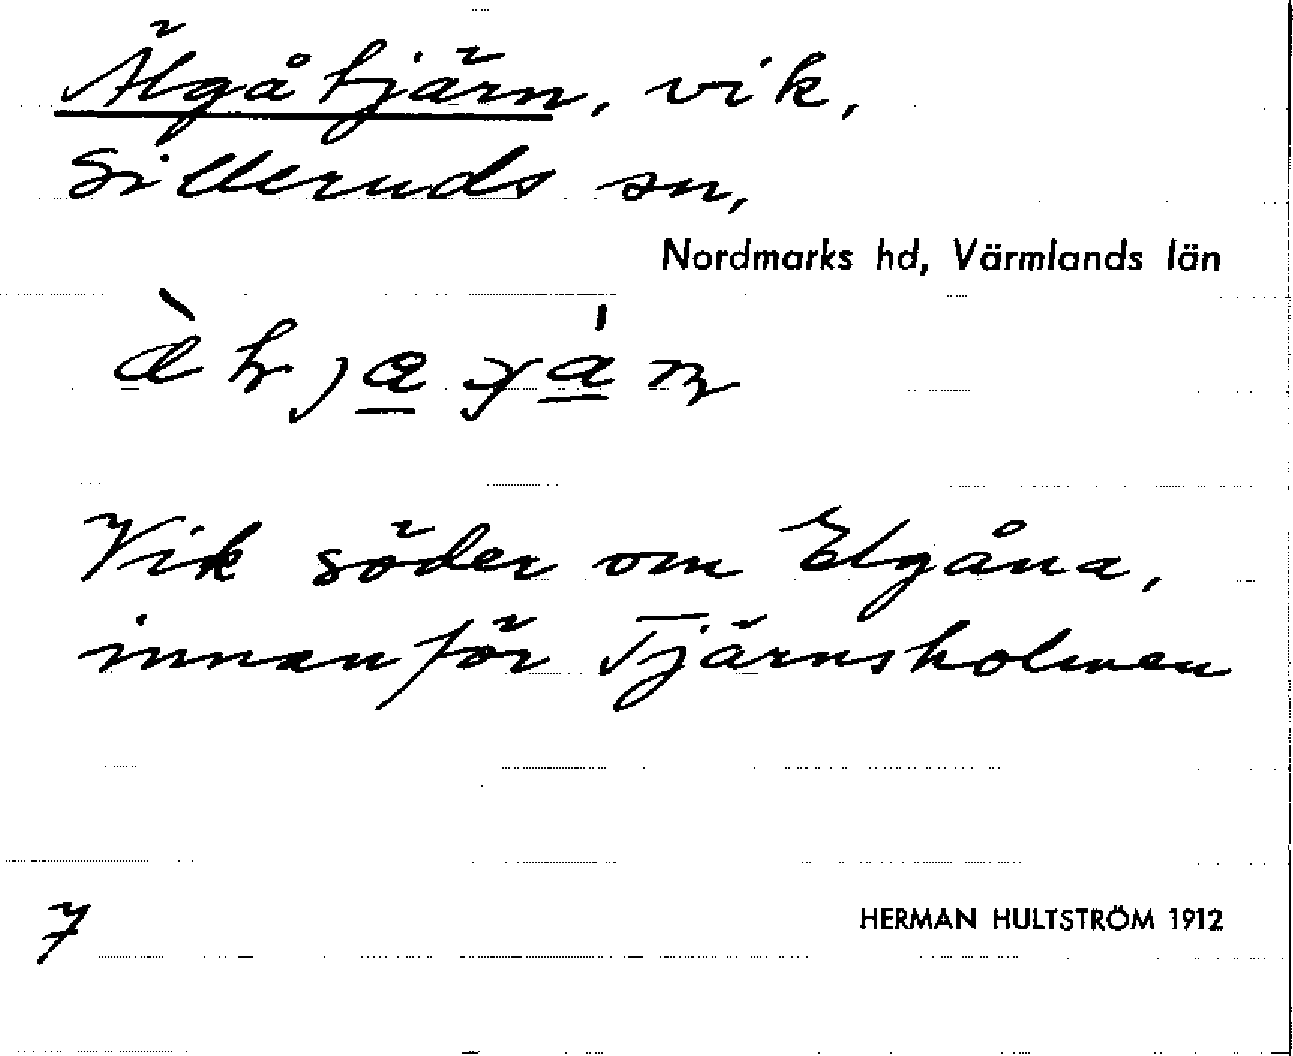 Älgåtjärn, vik,
Silleruds sn,
Nordmarks hd, Värmlands län
Vik söder om Elgåna,
innanför Tjärnsholmen
7
HERMAN HULTSTRÖM 1912